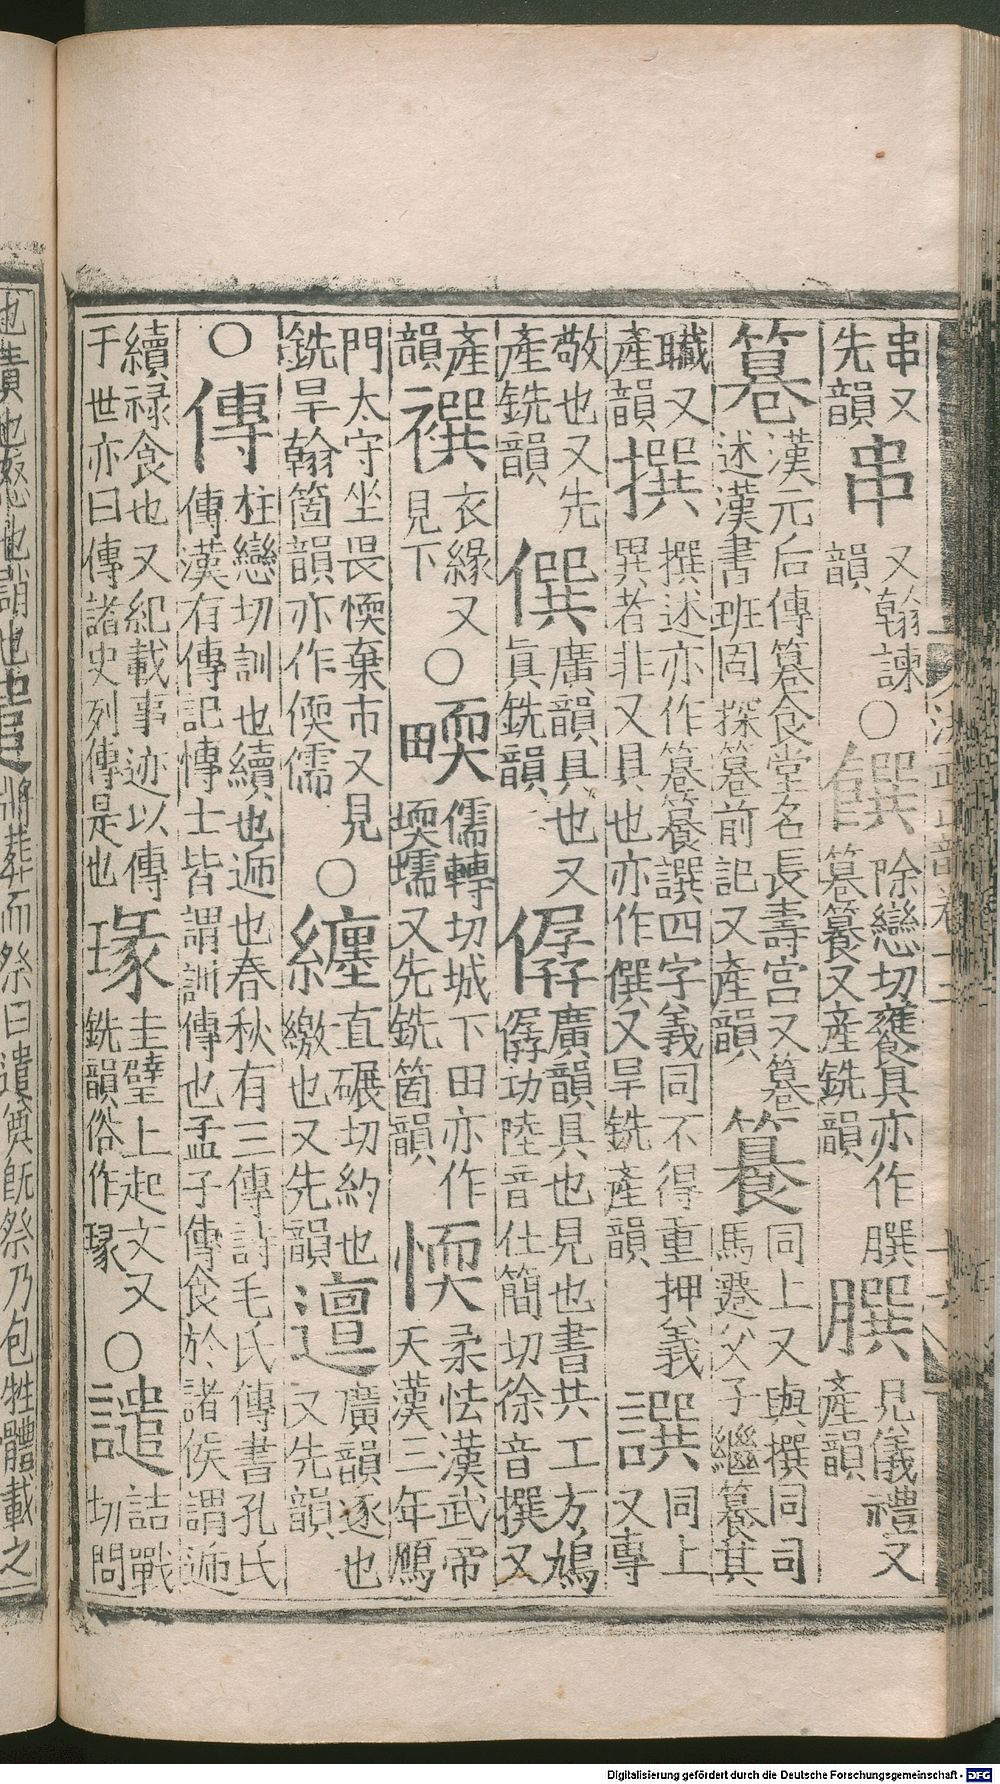 串又先韻串又翰諫韻〇饌除戀切饔食具亦作䉵籑又產銑韻䐣見儀禮又產韻
䉵漢元后傳䉵食堂名長壽宮又䉵述漢書班固探䉵前記又產韻籑同上又與撰同司馬遷父子繼籑其
職又產韻撰撰述亦作䉵籑譔四字義同不得重押義異者非又具也亦作僎又旱銑產韻譔同上又專
敬也又先產銑韻僎廣韻具也又眞銑韻僝廣韻具也見也書共工方鳩僝功陸音仕簡切徐音撰又
產韻襈衣緣又見下〇㽭儒轉切城下田亦作堧壖又先銑箇韻愞柔怯漢武帝天漢三年鴈
門太守坐畏愞棄市又見銑旱翰箇韻亦作偄儒〇纏直碾切約也繳也又先韻邅廣韻逐也又先韻
〇傳柱戀切訓也續也逓也春秋有三傳詩毛氏傳書孔氏傳漢有傳記博士皆謂訓傳也孟子傳食於諸侯謂逓
續祿食也又紀載事迹以傳于世亦曰傳諸史列傳是也瑑圭璧上起文又銑韻俗作瑑〇譴詰戰切問
將葬而祭曰遣奠既祭乃包牲體載之
Digitalisierung gefördert durch die Deutsche Forschungsgemeinschaft - DFG